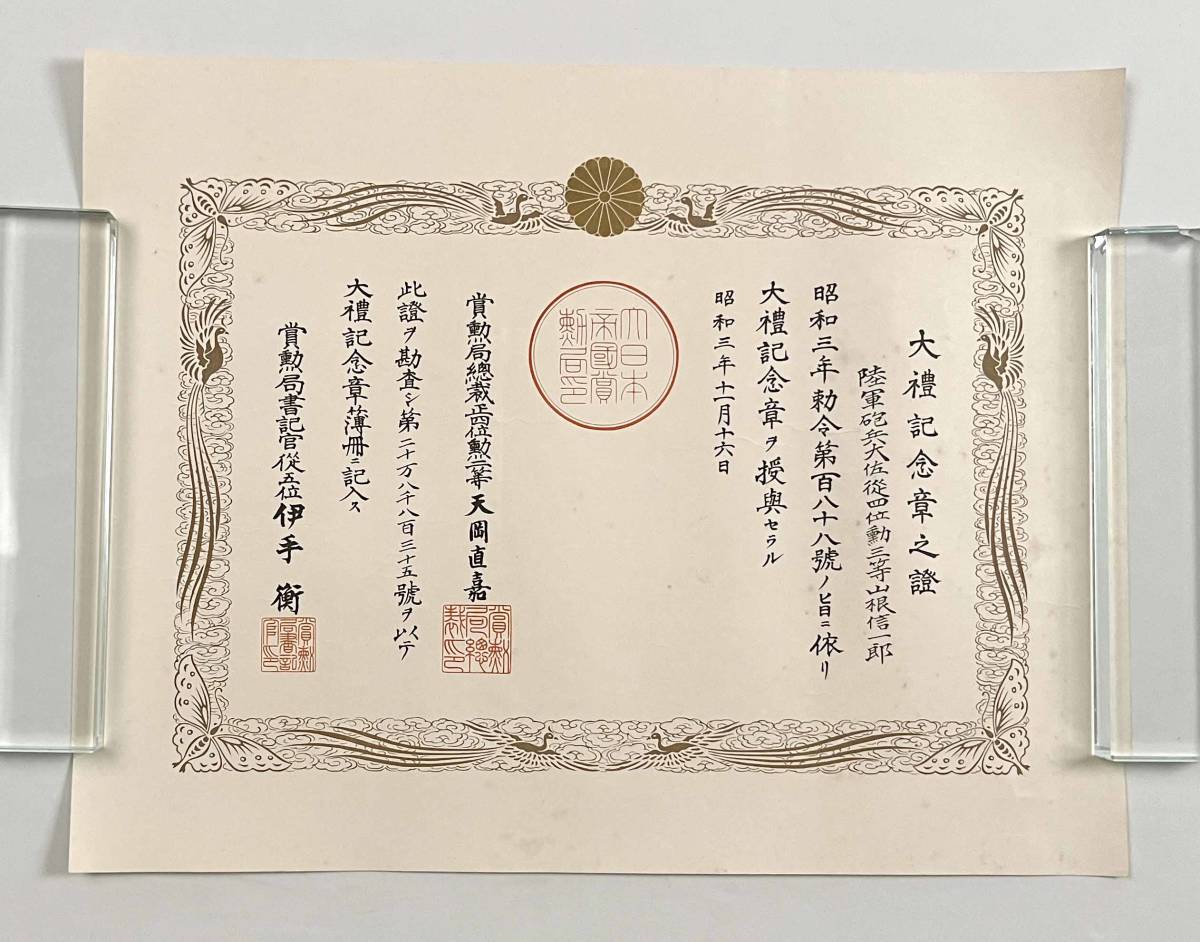 大禮記念章之證
陸軍砲兵大佐從四位勳三等山根信一郎
昭和三年勅令第百八十八號ノ旨ニ依リ
大禮記念章ヲ授與セラル
昭和三年十一月十六日
大日本
帝國賞
勳局印
賞勳局總裁正四位勳二等天岡直嘉
賞勳
局總
裁印
此證ヲ勘査シ第二十万八千八百三十五號ヲ以テ
大禮記念章簿冊ニ記入ス
賞勳局書記官從五位伊手衡
賞勳
局書記
官印